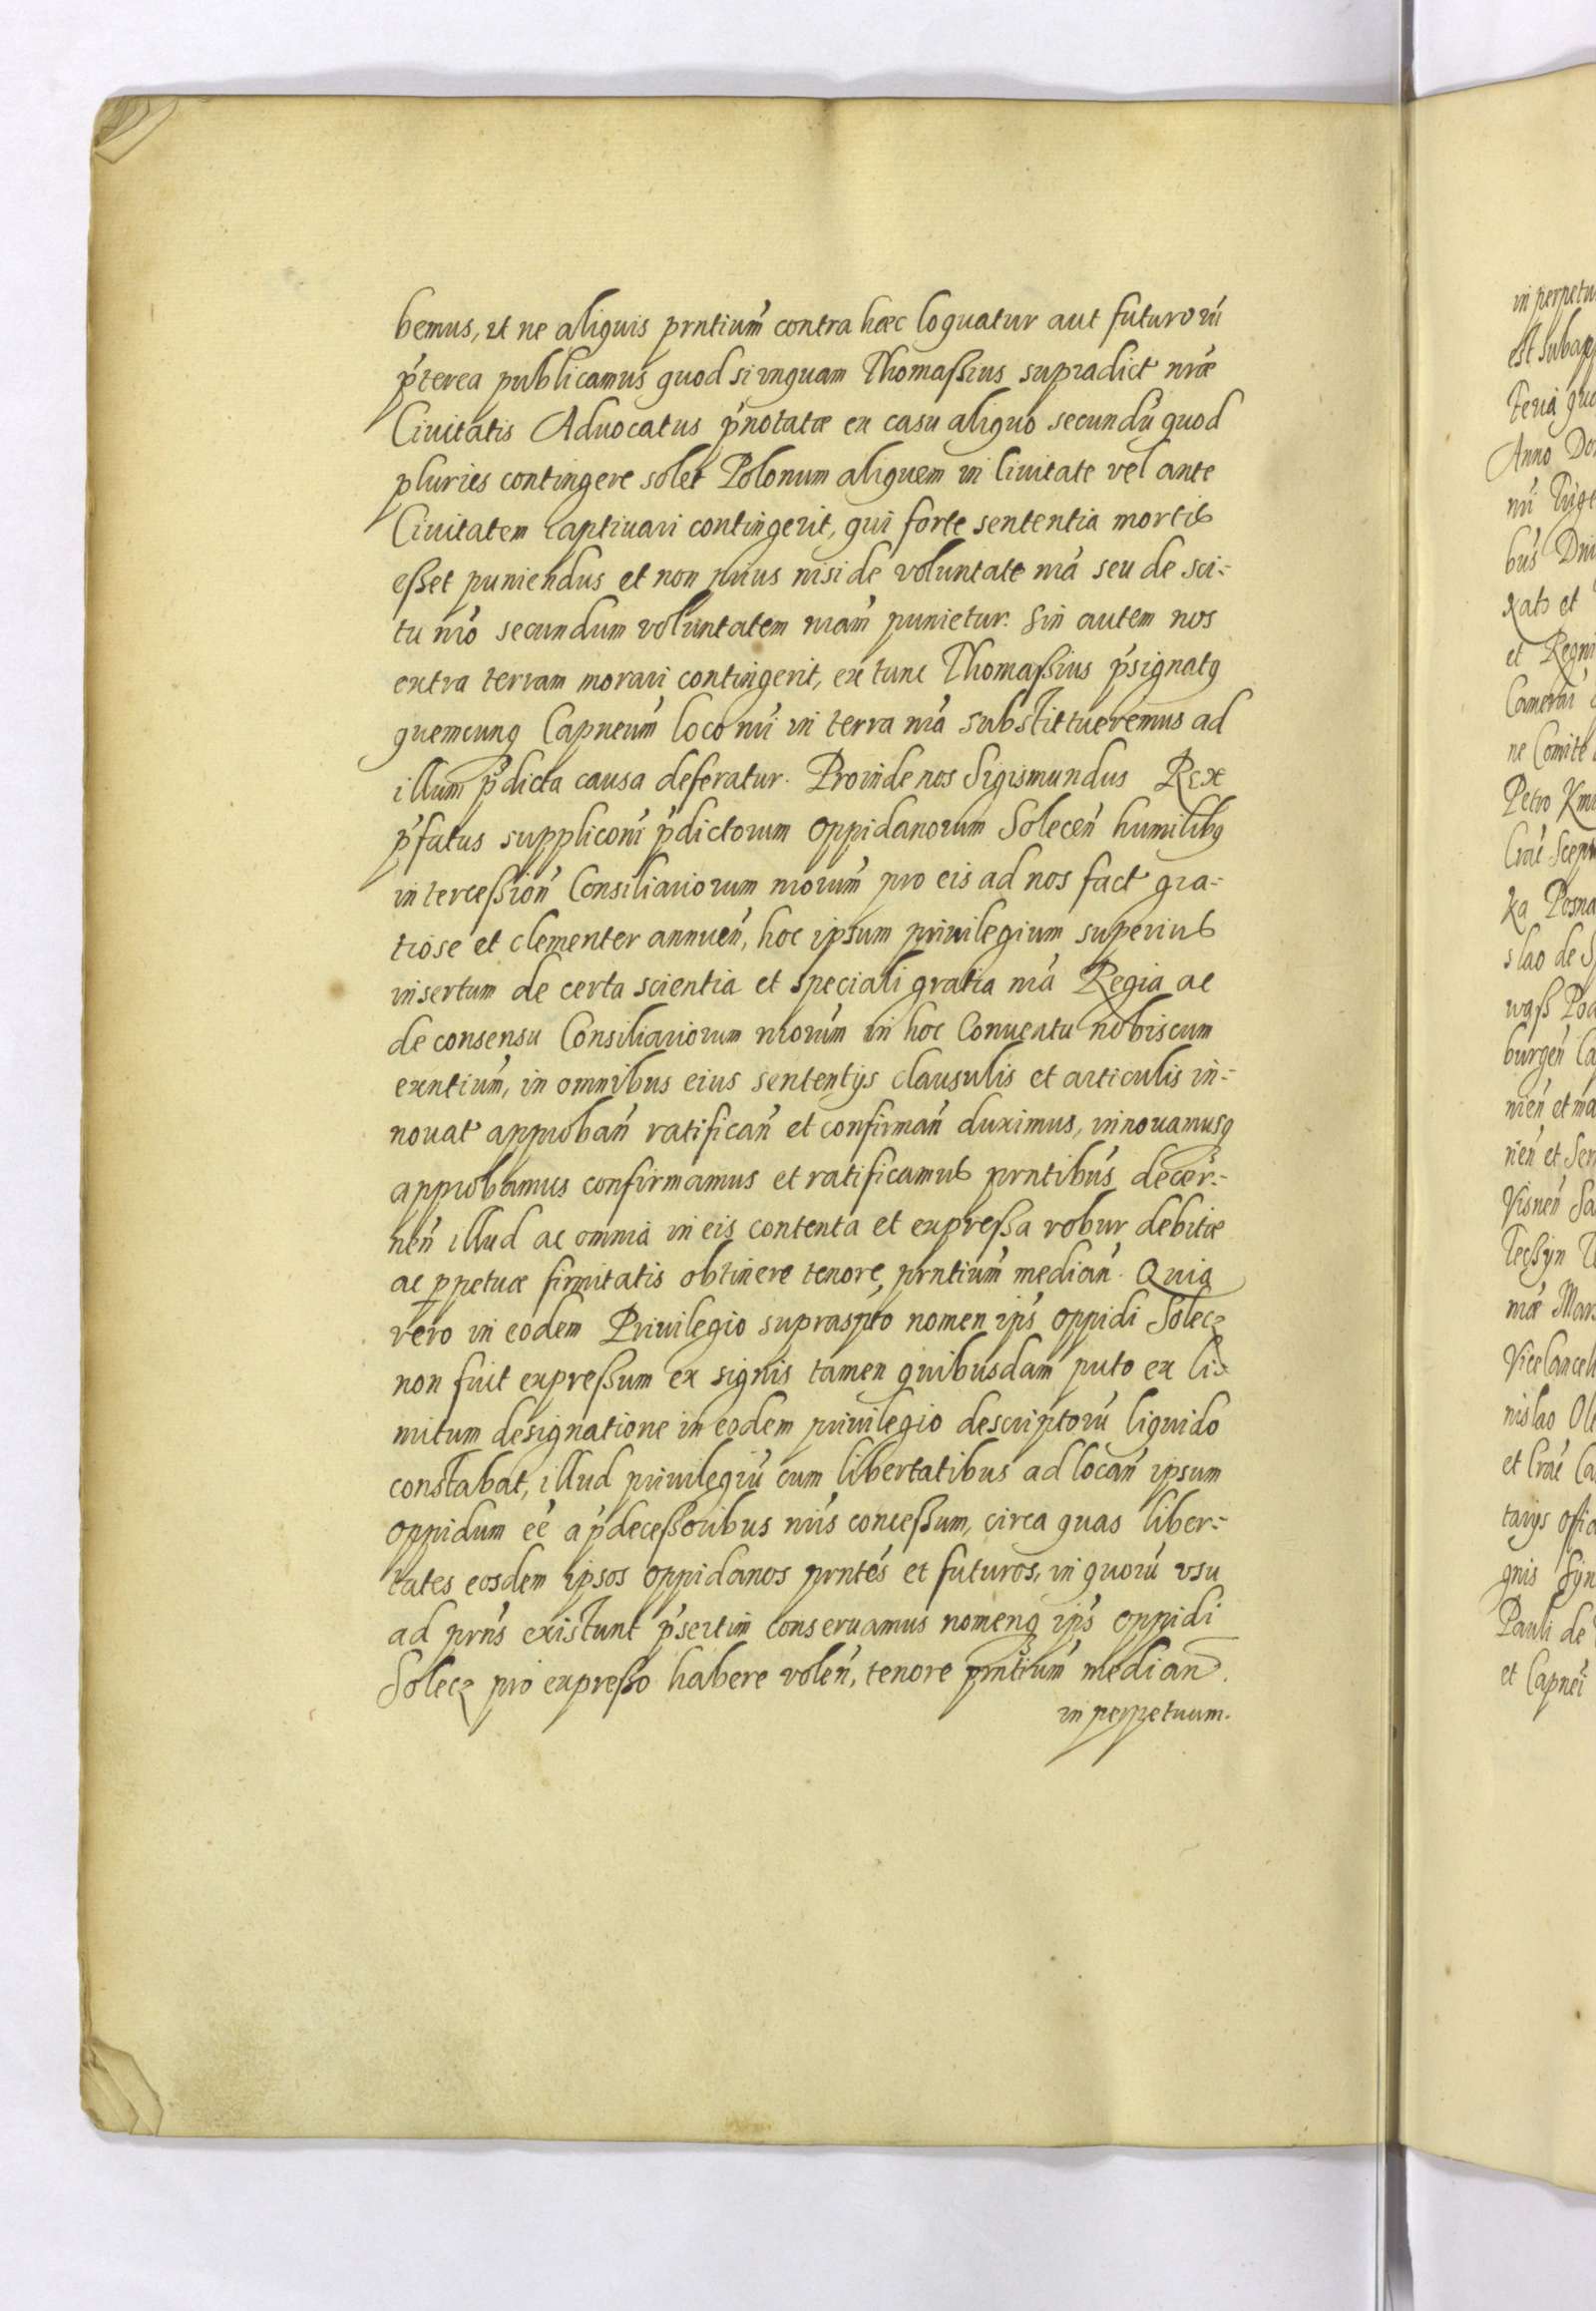 bemus, ut ne aliquis prntium contra hæc loquatur aut futuroru
pterea publicamus quod si unquam Thomaßius supradict nræ
Ciuitatis Aduocatus pnotatæ ex casu aliquo secundu quod
pluries contingere solet Polonum aliquem in Ciuitate vel ante
Ciuitatem captiuari contingerit, qui forte sententia mortis
eßet puniendus et non prius nisi de voluntate nra seu de sci-
tu nro secundum voluntatem nram punietur. Sin autem nos
extra terram morari contingerit, ex tunc Thomaßius psignatq
quemcunq Capneum loco nri in terra nra substittueremus ad
illum pdicta causa deferatur. Proinde nos Sigismundus Rex
pfatus supplicom pdictorum oppidanorum Solecen humilibq
interceßion Consiliariorum nrorum pro eis ad nos fact gra-
tiose et clementer annuen, hoc ipsum priuilegium superius
insertum de certa scientia et speciali gratia nra Regia ac
de consensu Consiliariorum nrorum in hoc Conuentu nobiscum
exntium, in omnibus eius sententijs clausulis et articulis in-
nouat approban ratifican et confirman duximus, innouamusq
approbamus confirmamus et ratificamus prntibus decer-
nen illud ac omnia in eis contenta et expreßa robur debitæ
ac ppetuæ firmitatis obtinere tenore prntium median. Quia
vero in eodem Priuilegio suprasptо nomen ips oppidi Solecz
non fuit expreßum ex signis tamen quibusdam puto ex li-
mitum designatione in eodem priuilegio descriptoru liquido
constabat, illud priuilegiu cum libertatibus ad locan ipsum
oppidum ee a pdeceßoribus nris conceßum, circa quas liber-
tates eosdem ipsos oppidanos prntes et futuros, in quoru vsu
ad prns existunt psertim conseruamus nomenq ips oppidi
Solecz pro expreßo habere volen, tenore prntium median.
in perpetuum.
in perpetu
est subapp
Teria
Anno Do
bus Dni
et Regni
ne Comite
Petro Kmi
ka Posna
slao de S
burgen Ca
nien et ma
nen et Sen
Visnen Sa
Teßyn
næ Mars
Vicecancell
nislao Ole
et Crac Ca
tarijs offi
gnis
Pauli de
et Capnei